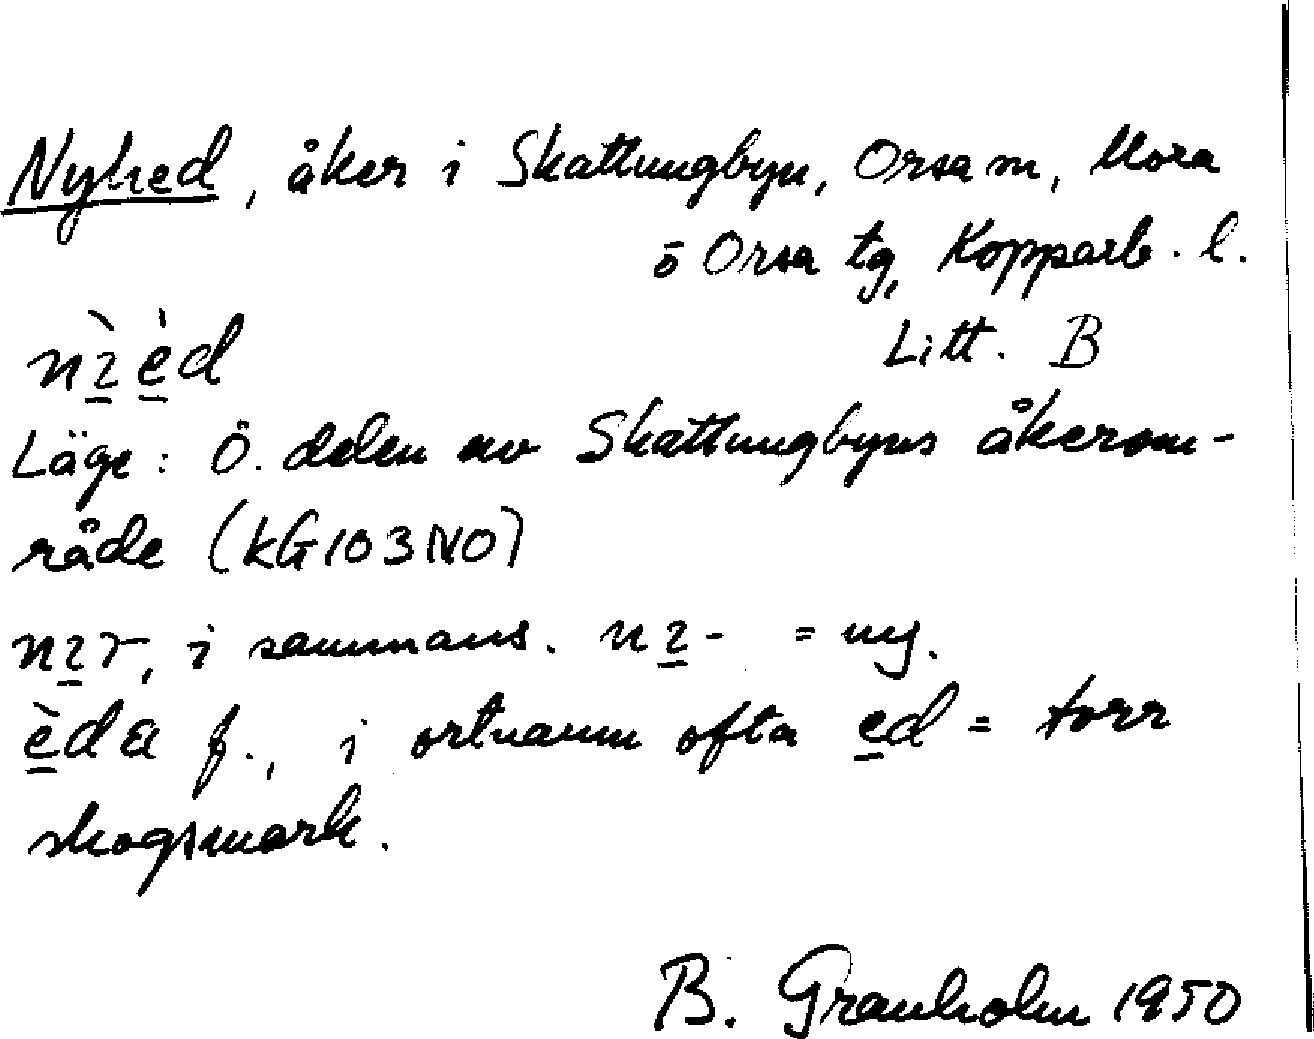 Nyhed, åker i Skattungbyn, Orsa sn, Mora
o Orsa tg, Kopparb. l.
Litt. B
Läge: Ö. delen av Skattungbyns åkerom-
råde (KG103NO)
i sammans. = ny.
èda f., i ortnamn ofta ed = torr
skogsmark.
B. Granholm 1950